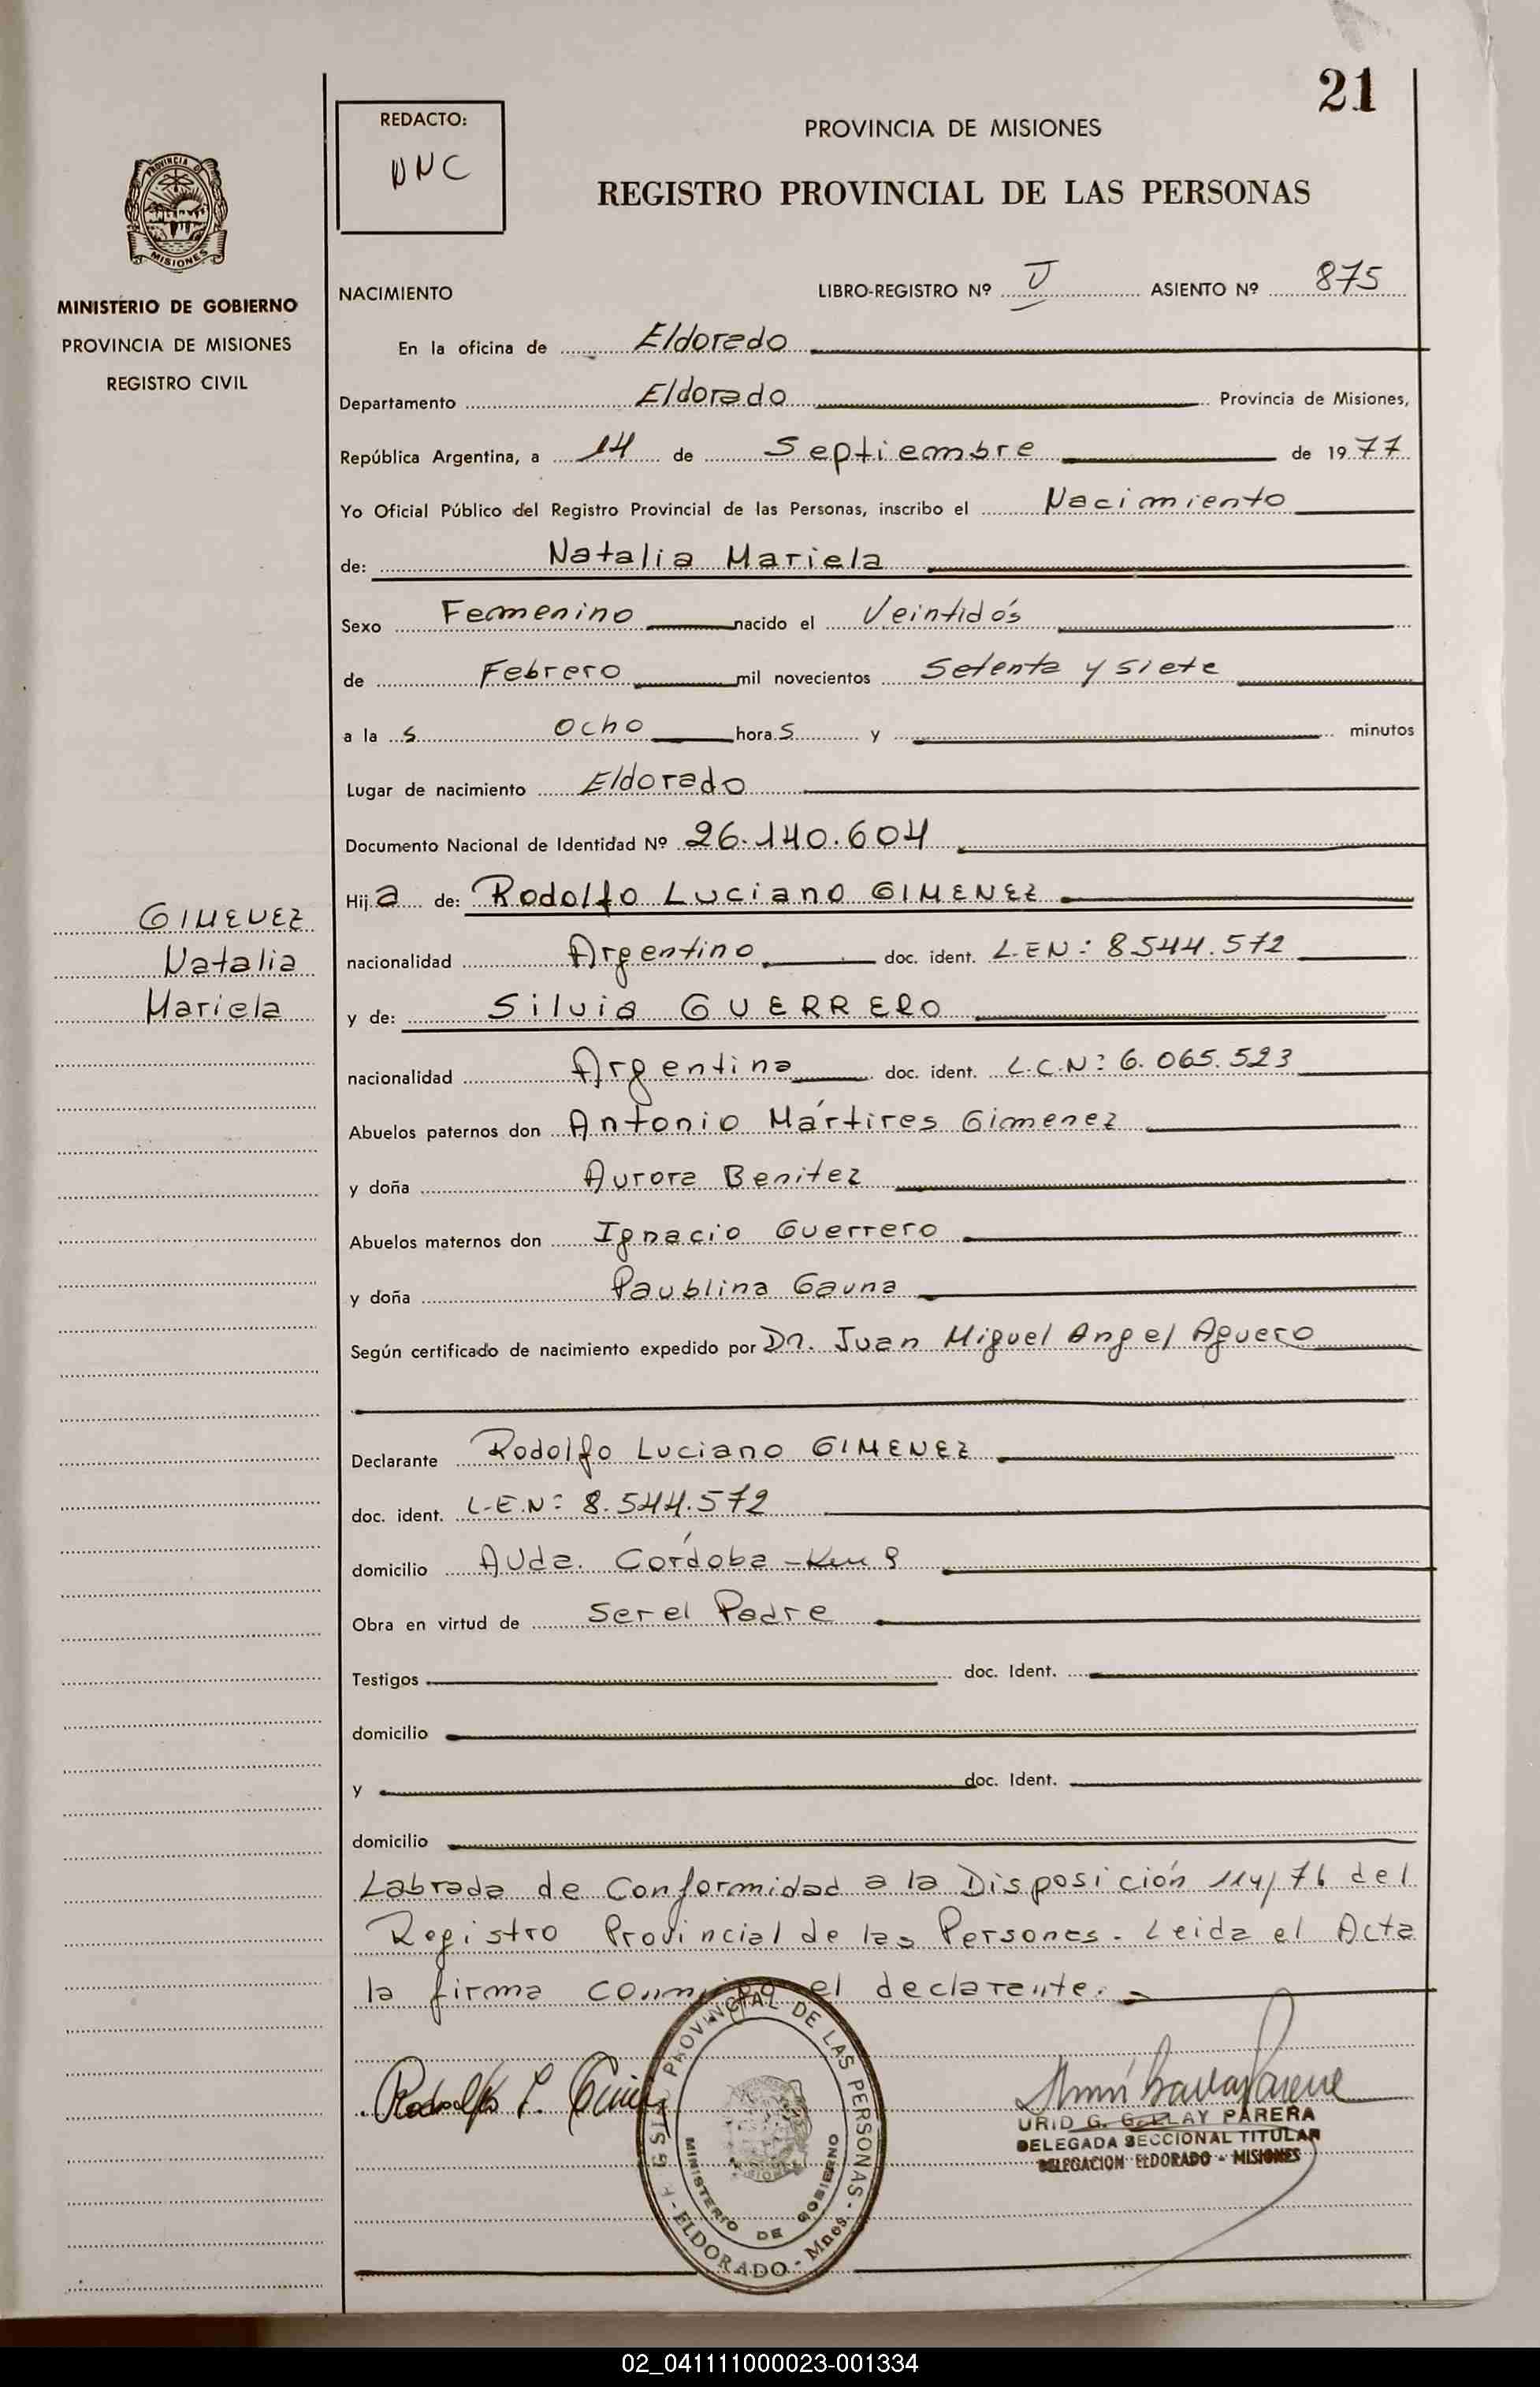 21
REDACTO:
NNC
PROVINCIA DE MISIONES
REGISTRO PROVINCIAL DE LAS PERSONAS
PROVINCIA DE
MISIONES
MINISTERIO DE GOBIERNO
PROVINCIA DE MISIONES
REGISTRO CIVIL
NACIMIENTO LIBRO-REGISTRO Nº V ASIENTO Nº 875
En la oficina de Eldorado
Departamento Eldorado Provincia de Misiones,
República Argentina, a 14 de Septiembre de 1977
Yo Oficial Público del Registro Provincial de las Personas, inscribo el Nacimiento
de: Natalia Mariela
Sexo Femenino nacido el Veintidós
de Febrero mil novecientos Setenta y siete
a la s ocho hora s y minutos
Lugar de nacimiento Eldorado
Documento Nacional de Identidad Nº 26.140.604
Hij a de: Rodolfo Luciano GIMENEZ
GIMENEZ
Natalia
Mariela
nacionalidad Argentino doc. ident. L.E.N: 8.544.572
y de: Silvia GUERRERO
nacionalidad Argentina doc. ident. L.C.N: 6.065.523
Abuelos paternos don Antonio Mártires Gimenez
y doña Aurora Benitez
Abuelos maternos don Ignacio Guerrero
y doña Paublina Gauna
Según certificado de nacimiento expedido por Dn. Juan Miguel Angel Aguero
Declarante Rodolfo Luciano GIMENEZ
doc. ident. L.E.N: 8.544.572
domicilio Avda. Córdoba - Km 9
Obra en virtud de ser el Padre
Testigos doc. Ident.
domicilio
y doc. Ident.
domicilio
Labrada de Conformidad a la Disposición 114/76 del
Registro Provincial de las Personas. Leida el Acta
la firma conmigo el declarante.
Rodolfo L. Gimenez
PROVINCIAL DE LAS PERSONAS - ELDORADO - Mnes.
MINISTERIO DE GOBIERNO
PARERA
DELEGADA SECCIONAL TITULAR
DELEGACION ELDORADO - MISIONES
02_041111000023-001334